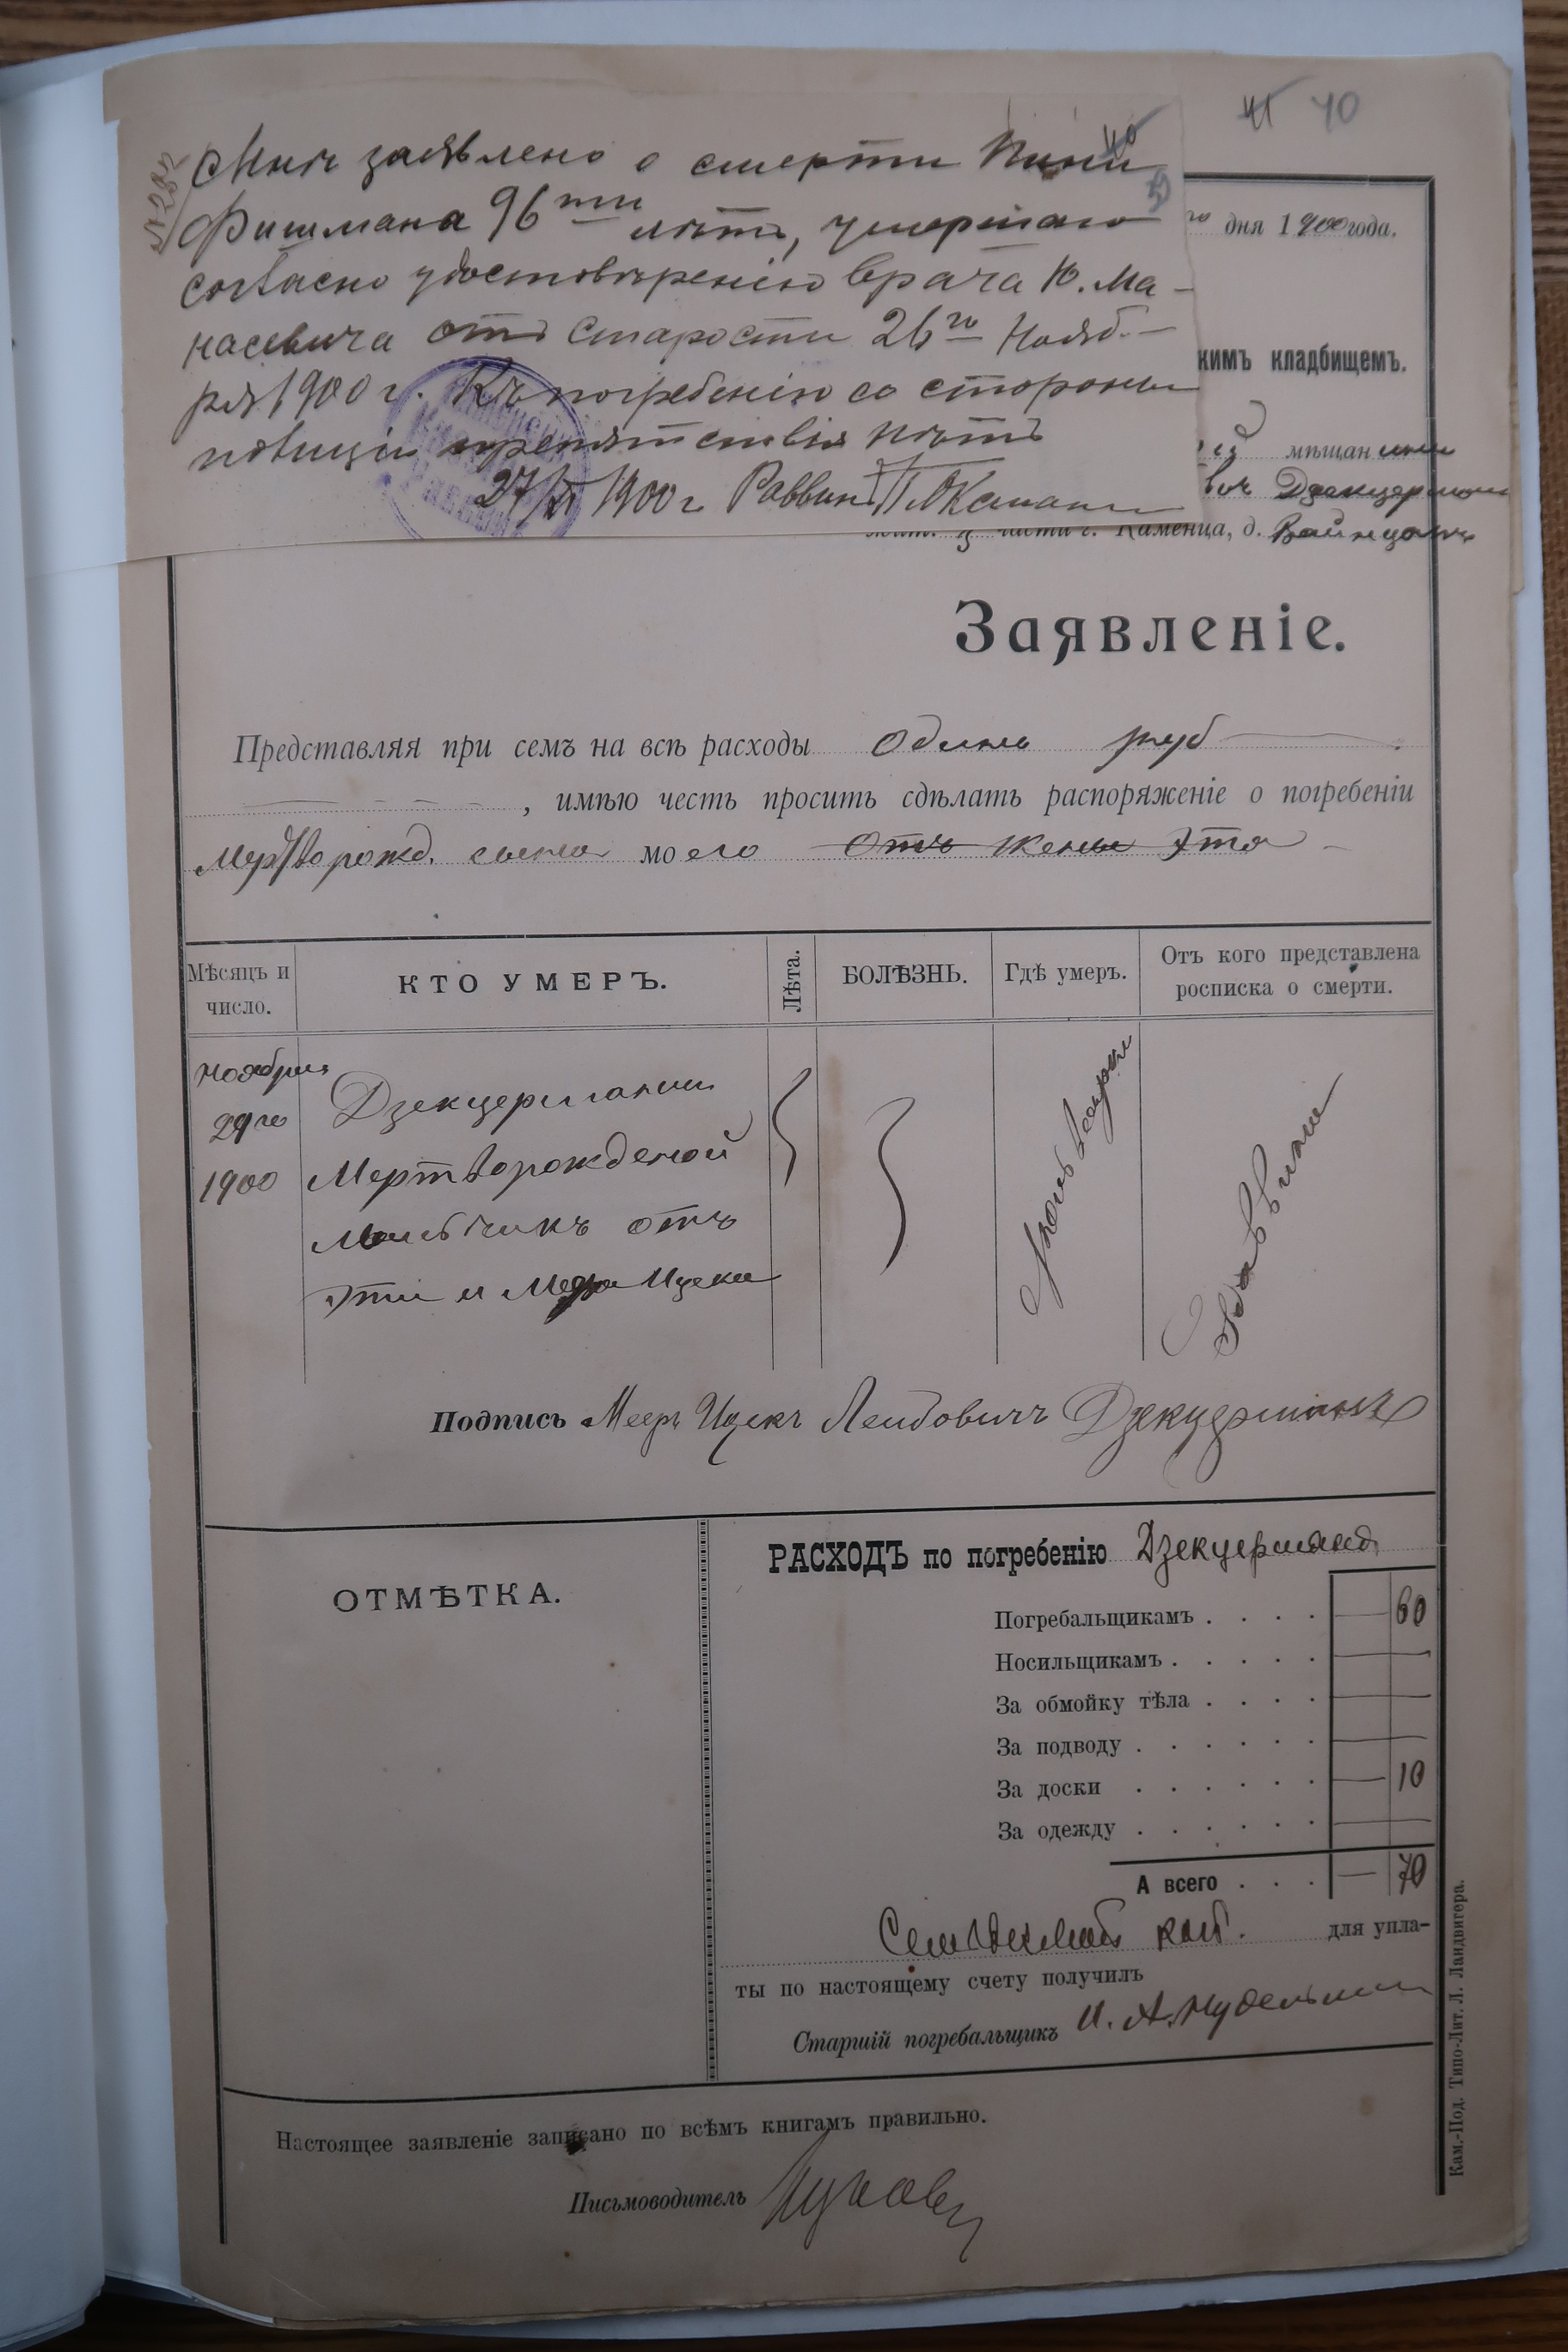 41 40
№ 282
Мнѣ заявлено о смерти Пини
Фишмана 96 ти лѣтъ, умершаго
согласно удостовѣренію врача Ю. Ма-
насевича отъ старости 26 го Нояб-
ря 1900 г. Къ погребенію со стороны
полиціи препятствія нѣтъ
27/XI 1900 г. Раввинъ
го дня 1900 года.
кимъ кладбищемъ.
мѣщанина
вич Дзекцермана
части г. Каменца, д. Вайнцвайга
Заявленіе.
Представляя при семъ на всѣ расходы Одинъ руб
, имѣю честь просить сдѣлать распоряженіе о погребеніи
Мертворожд. сына моего отъ жены Этя
Мѣсяцъ и число.
КТО УМЕРЪ.
Лѣта.
БОЛѢЗНЬ.
Гдѣ умеръ.
Отъ кого представлена росписка о смерти.
Ноября
29 го
1900
Дзекцерманъ
Мертворожденой
Мальчикъ отъ
Эти и Меера Ицека
Раввина
Подпись Мееръ Ицекъ Лейбовичъ Дзекцерманъ
ОТМѢТКА.
РАСХОДЪ по погребенію Дзекцерманъ
Погребальщикамъ . . . . — 60
Носильщикамъ . . . . . —
За обмойку тѣла . . . . —
За подводу . . . . . . —
За доски . . . . . . — 10
За одежду . . . . . . —
А всего . . . — 70
Семьдесятъ коп. для упла-
ты по настоящему счету получилъ
Старшій погребальщикъ И. А. Нудельман
Настоящее заявленіе записано по всѣмъ книгамъ правильно.
Письмоводитель
Кам.-Под. Типо-Лит. Л. Ландвигера.